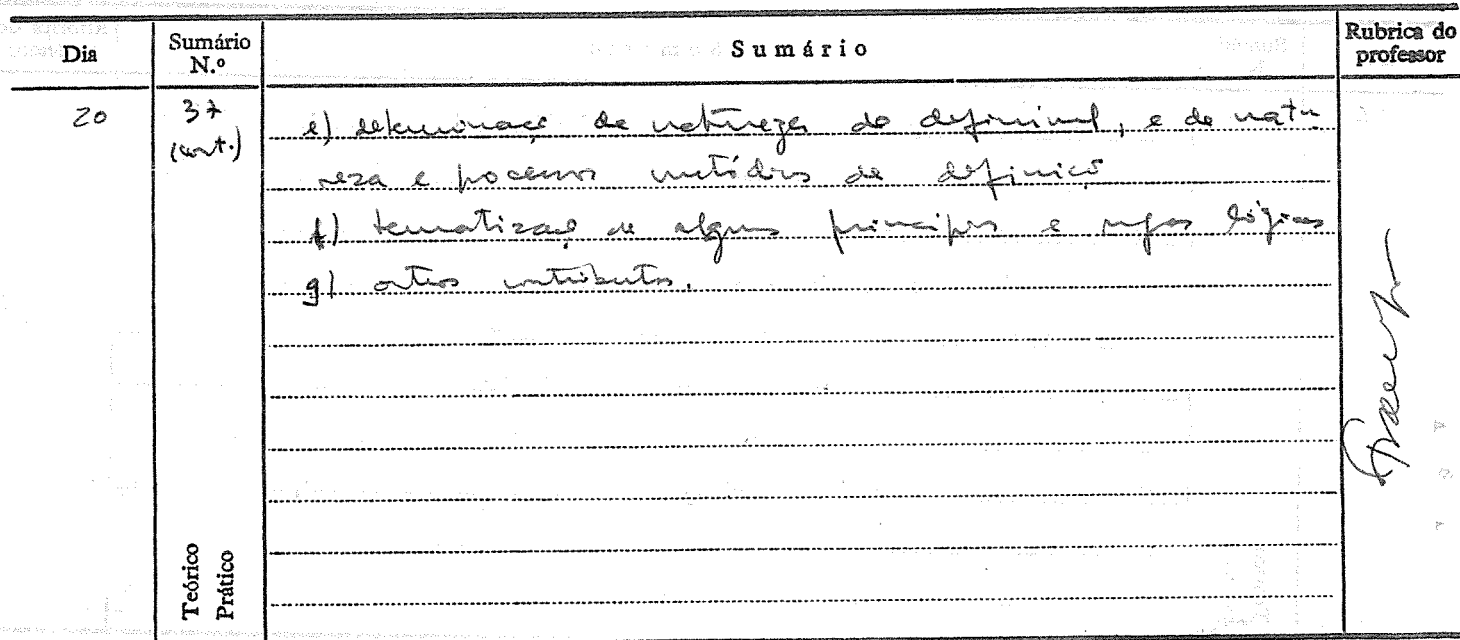 Dia
Sumário N.º
Sumário
Rubrica do professor
20
37
(cont.)
e) determinação da natureza do definível, e da natu
reza e processos metódicos da definição
f) tematização de alguns princípios e regras lógicas
g) outros contributos.
Teórico
Prático